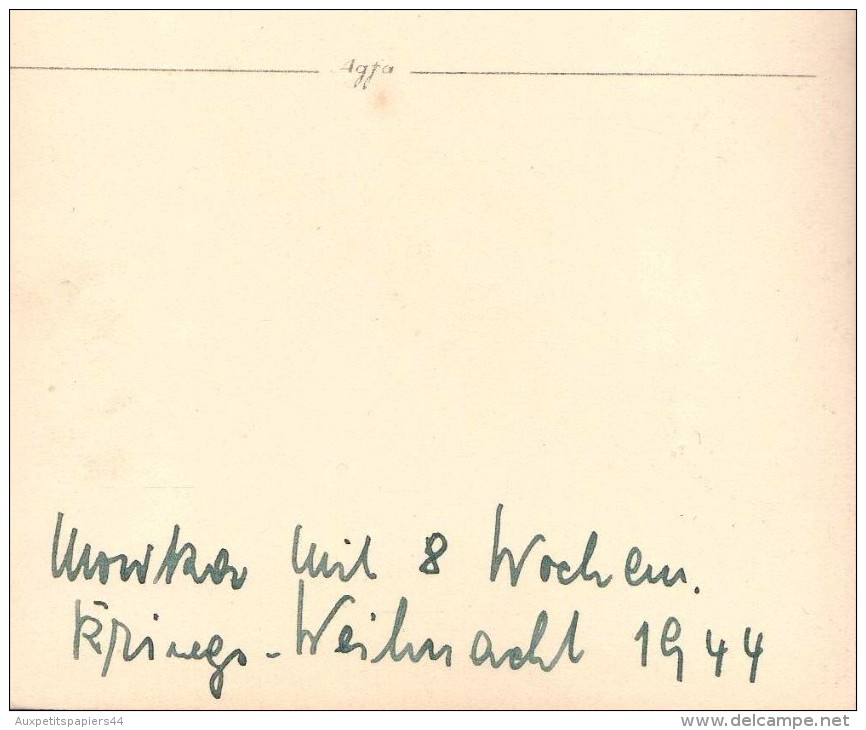 Agfa
Monika mit 8 Wochen.
Kriegs-Weihnacht 1944
Auxpetitspapiers44
www.delcampe.net